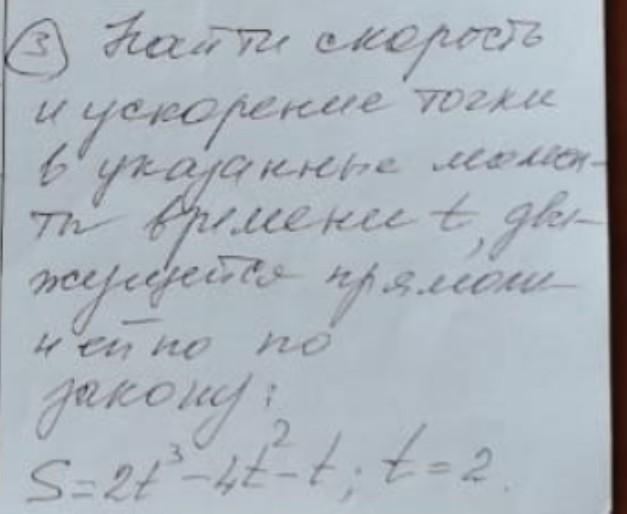 ③ Найти скорость
и ускорение точки
в указанные момен-
ты времени t, дви-
жущейся прямоли-
нейно по
закону:
S=2t³-4t²-t; t=2.